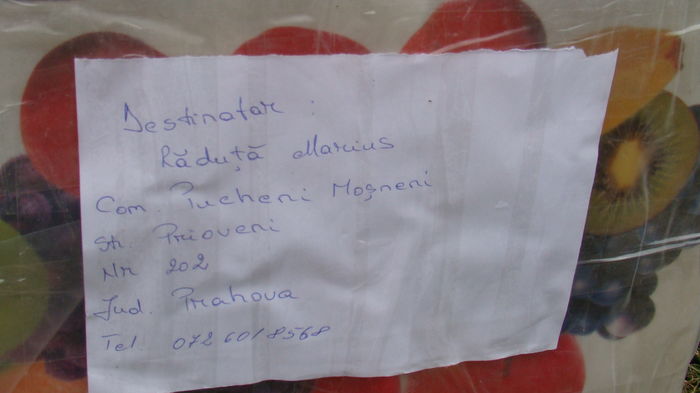 Destinatar :
Răduță Marius
Com. Pucheni Moșneni
Str. Prioveni
Nr 202
Jud. Prahova
Tel. 0726018568